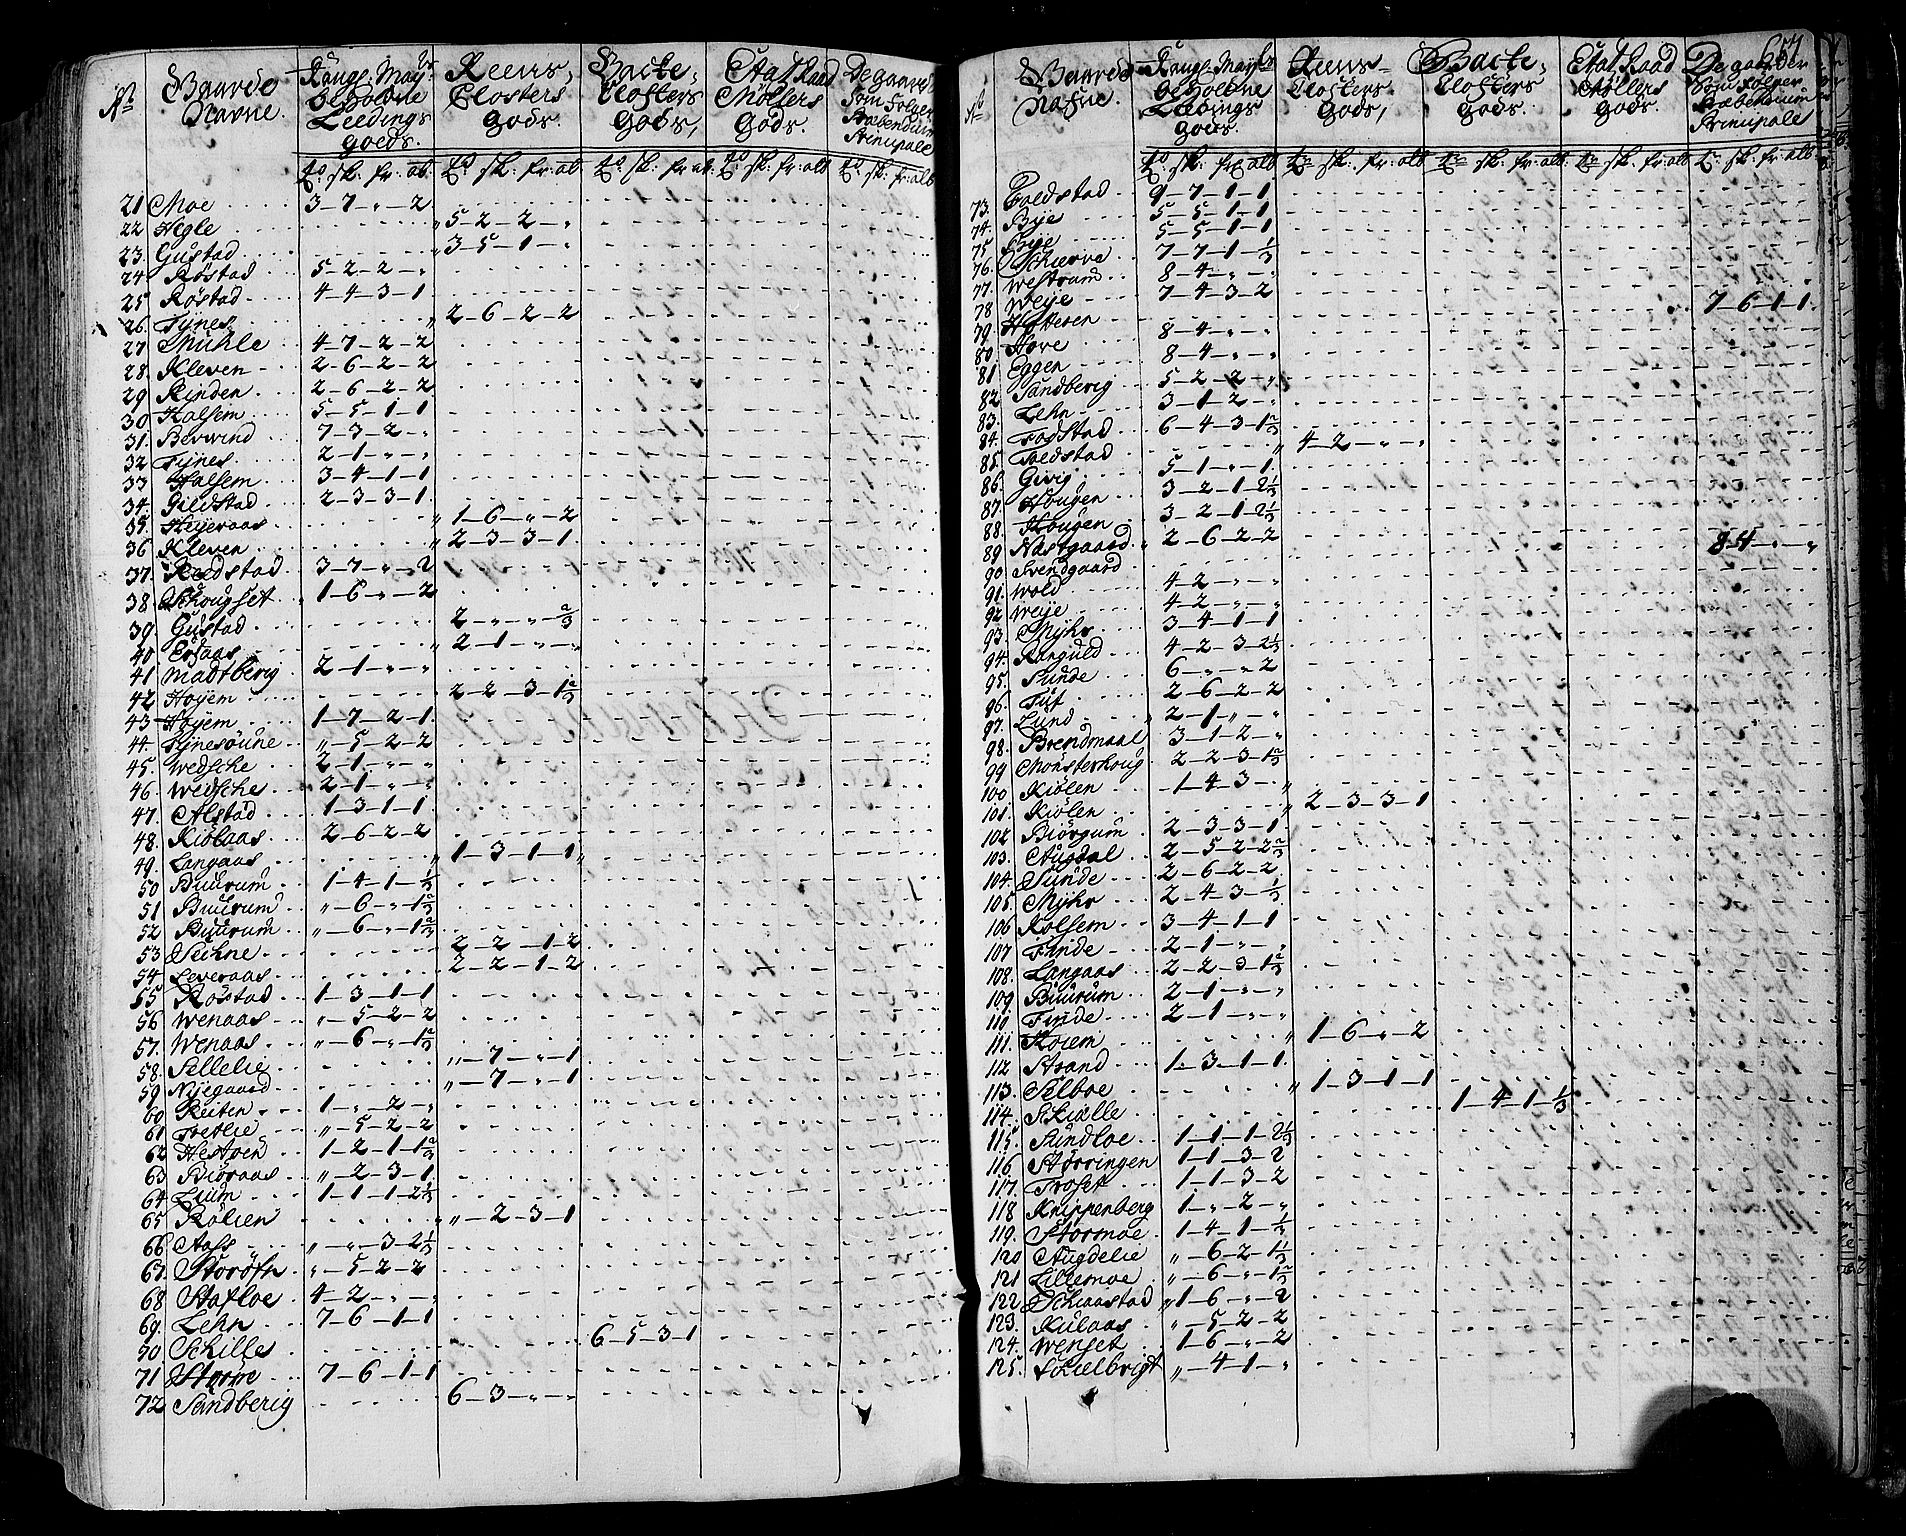 No Gaarde Navne. Kongl: Mayts beholdne Leedings goeds. Reens Closters gods. Backe Closters gods, Etat Raad Möllers Gods. De gaarder som følger Præbendum Principale
℔ sk: fr: al: ℔ sk: fr: al: ℔ sk: fr: al: ℔ sk: fr: alb ℔ sk: fr: alb
21 Moe 3-7-"-2
22 Hegle " 5-2-2-"
23. Gustad " 3-5-1-"
24 Röstad 5-2-2-"
25 Röstad 4-4-3-1
26. Tÿnes " 2-6-2-2
27 Muhle 4-7-2-2
28. Kleven 2-6-2-2
29 Rinden 2-6-2-2
30 Halsem 5-5-1-1
31. Berwind 7-3-2-"
32 Tÿnes 2-1-"-"
33 Halsem 3-4-1-1
34. Gildstad 2-3-3-1
35. Heÿeraas " 1-6-"-2
36 Kleven " 2-3-3-1
37. Rødstad 3-7-"-2
38. Schougset 1-6-"-2
39. Gustad 2-"-"-2/3
40 Ersaas " 2-1-"-"
41 Madtberg 2-1-"-"
42 Høyem 2-2-3-1 2/3
43 Høyem 1-7-2-1
44. Tÿnesöune "-5-2-2
45. Wedsche 2-1-"-"
46. Wedsche 2-1-"-"
47. Alstad 1-3-1-1
48. Kiölaas 2-6-2-2
49. Langaas " 1-3-1-1
50 Buurum 1-4-1-1/3
51 Buurum "-6-"-1 2/3
52 Buurum "-6-"-1 2/3
53 Suhne 2-2-1-2
54. Leveraas 2-2-1-2
55 Röstad 1-3-1-1
56 Wenaas "-5-2-2
57. Wenaas "-6-"-1 2/3
58. Sellelie "-7-"-1
59 Nÿegaard "-7-"-1
60 Reiten 1-"-2-"
61 Tretlie "-5-2-2
62 Hestoen 1-2-1-1 2/3
63 Biöraas "-2-3-1
64 Lium 1-1-1-2 1/3
65 Rölien "-2-3-1
66 Aass "-"-3-2 1/3
67. Storöfn "-5-2-2
68 Stafloe 4-2-"-"
69. Lehn 7-6-1-1
70 Schilles 6-5-3-1
71 Storöe 7-6-1-1
72 Sandberig 6-3-"-"
657
No Gaarde Nafne. Kongl: Mayts beholdne Leedings goeds. Reens Closters gods, Backe Closters gods. Etat Raad Möllers gods De gaarder som følger Præbendum Principale
℔ sk: fr: alb ℔ sk: fr: alb ℔ sk: fr: alb: ℔ sk: fr: alb ℔ sk: fr: alb
73. Foldstad 9-7-1-1
74. Bÿe 5-5-1-1
75 Bÿe 5-5-1-1
76. Schierve 7-7-1-1/3
77. Westrum 8-4-"-"
78 Weÿe 7-4-3-2
79 Hotteren 7-6-1-1
80. Hove 8-4-"-"
81 Eggen 8-4-"-"
82. Sandberig 5-2-2-"
83. Lehn 3-1-2-"
84. Fodstad 6-4-3-1 2/3
85. Foldstad " 4-2-"-"
86. Givig 5-1-"-1
87. Hougen 3-2-1-2 1/3
88. Hougen 3-2-1-2 1/3
89 Nastgaard " 2-6-2-2
90 Svendgaard 8-4-"-"
91. Wold 4-2-"-"
92 Weÿe 4-2-"-"
93. Mÿhr 3-4-1-1
94. Ranguld 4-2-3-2 1/3
95. Sunde 6-"-"-2
96. Tuf 2-6-2-2
97. Lund " 2-1-"-"
98. Brendmaal 3-1-2-"
99 Monsterhoug 2-2-3-1 2/3
100 Kiölen 1-4-3-"
101. Kiölen " 2-3-3-1
102 Biörgum 2-3-3-1
103. Augdal 2-5-2-2 2/3
104. Sunde 2-6-2-2
105. Mÿhr 2-4-3-1/3
106 Kolsem 3-4-1-1
107 Finde 2-1-"-"
108. Langaas 2-2-3-1 2/3
109 Buurum 2-1-"-"
110. Finde 2-1-"-"
111. Koiem " 1-6-"-2
112 Strand 1-3-1-1
113. Selboe " 1-3-1-1
114. Skiölle 1-4-1-1/3
115. Sundloe 1-1-1-2 1/3
116 Störringen 1-1-3-2
117. Troset 1-1-3-2
118 Knippenberg 1-"-2-"
119. Stormoe 1-4-1-1/3
120 Augdelie "-6-2-1 1/3
121 Lillemoe "-6-"-1 2/3
122. Schiaastad " 1-6-"-2
123. Kulaas "-5-2-2
124. Wenset 1-6-"-2
125. Sollelbrigt "-4-1-"